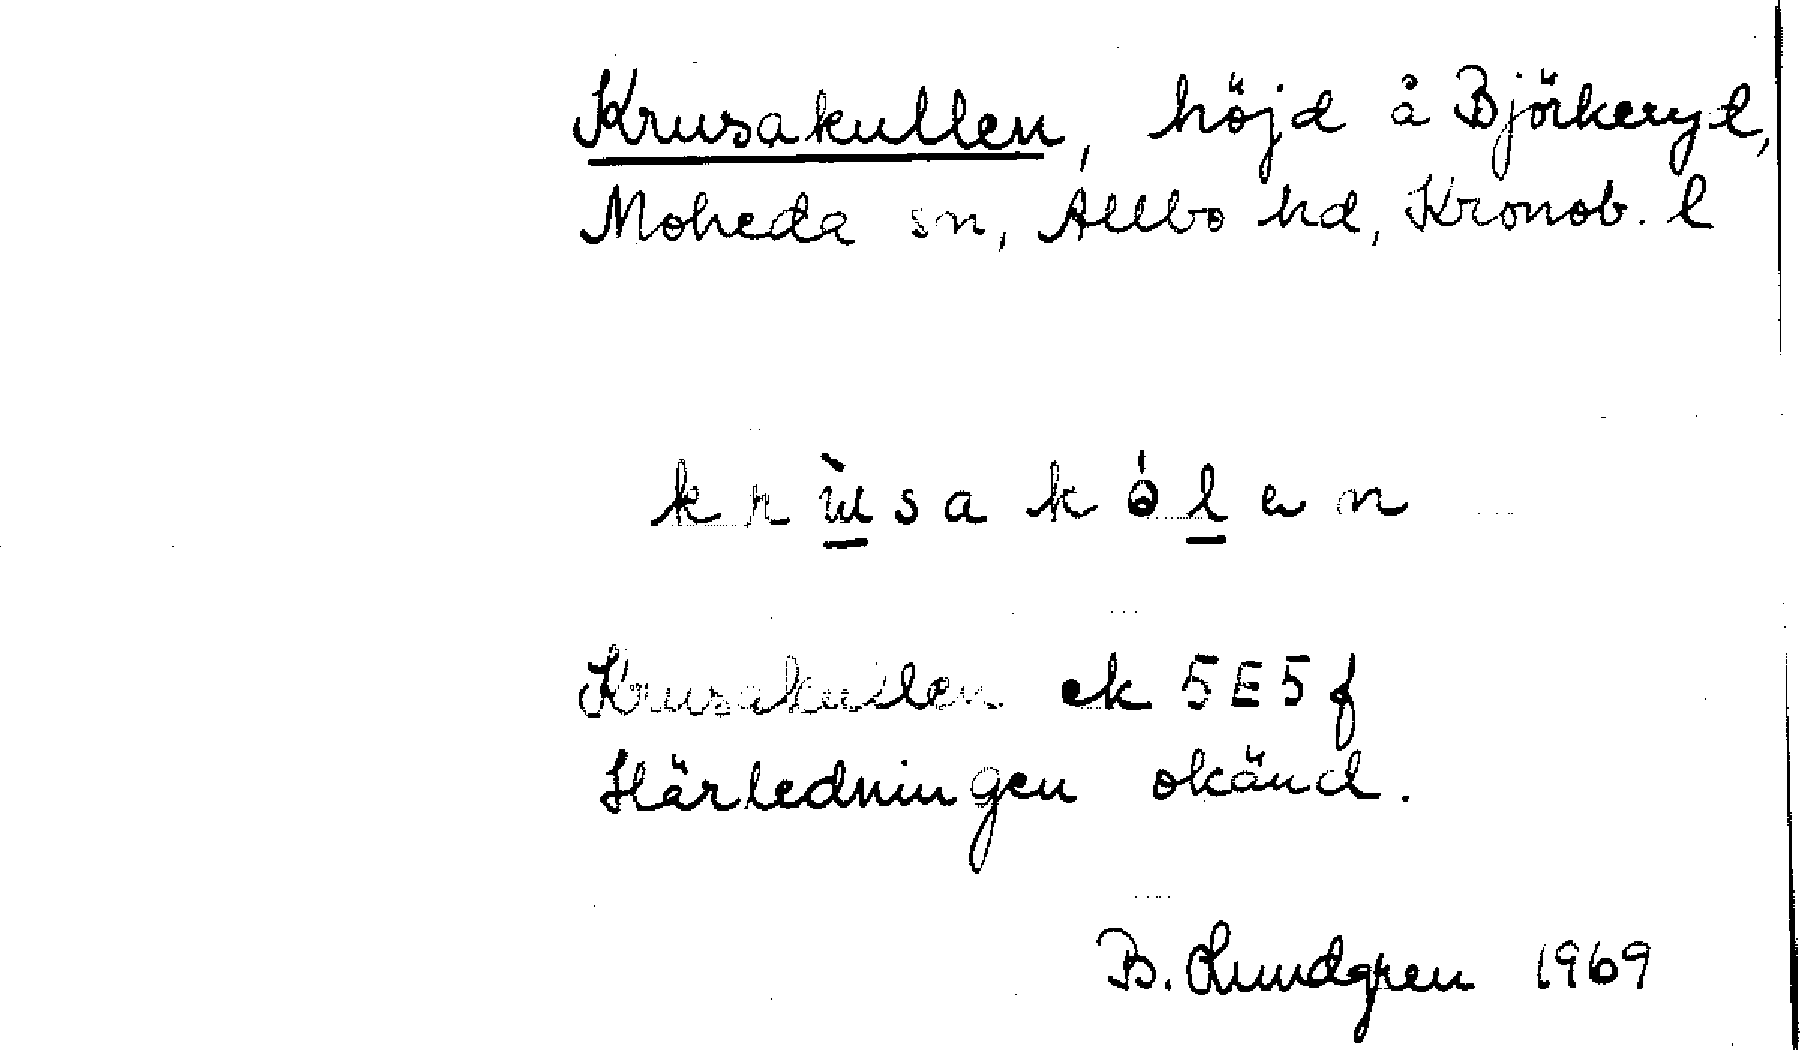 Krusakullen, höjd å Björkeryd,
Moheda sn, Allbo hd, Kronob. l
krɯ̀sakólen
Krusakullen ek 5E5f
Härledningen okänd.
B. Lundgren 1969